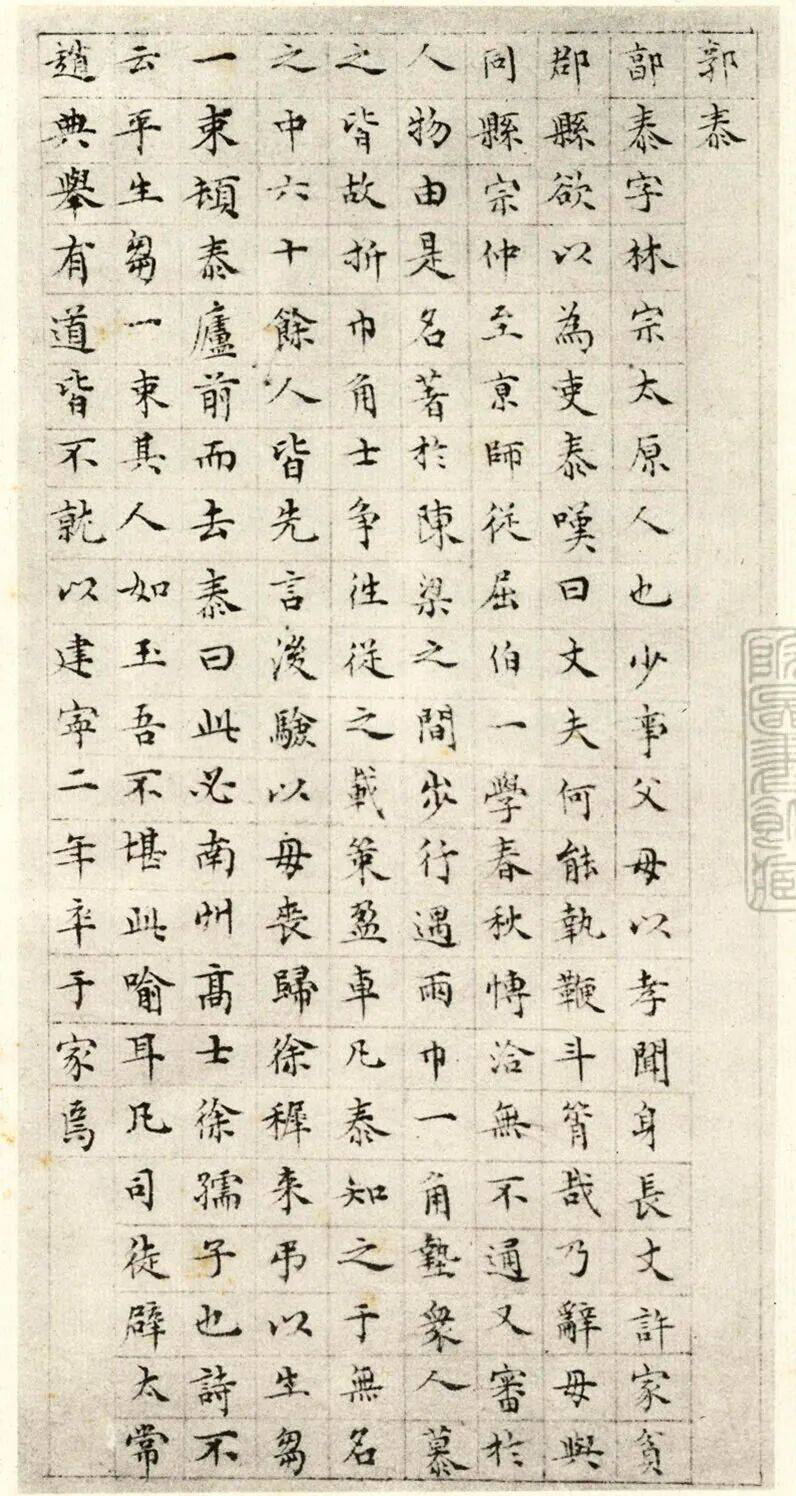 郭泰
郭泰字林宗太原人也少事父母以孝聞身長丈許家貧
郡縣欲以為吏泰嘆曰丈夫何能執鞭斗筲哉乃辭母與
同縣宗仲至京師從屈伯一學春秋博洽無不通又審於
人物由是名著於陳梁之間步行遇雨巾一角墊衆人慕
之皆故折巾角士爭往從之載策盈車凡泰知之于無名
之中六十餘人皆先言後驗以母喪歸徐稺来弔以生芻
一束頓泰廬前而去泰曰此必南州高士徐孺子也詩不
云乎生芻一束其人如玉吾不堪此喻耳凡司徒辟太常
趙典舉有道皆不就以建寧二年卒于家焉